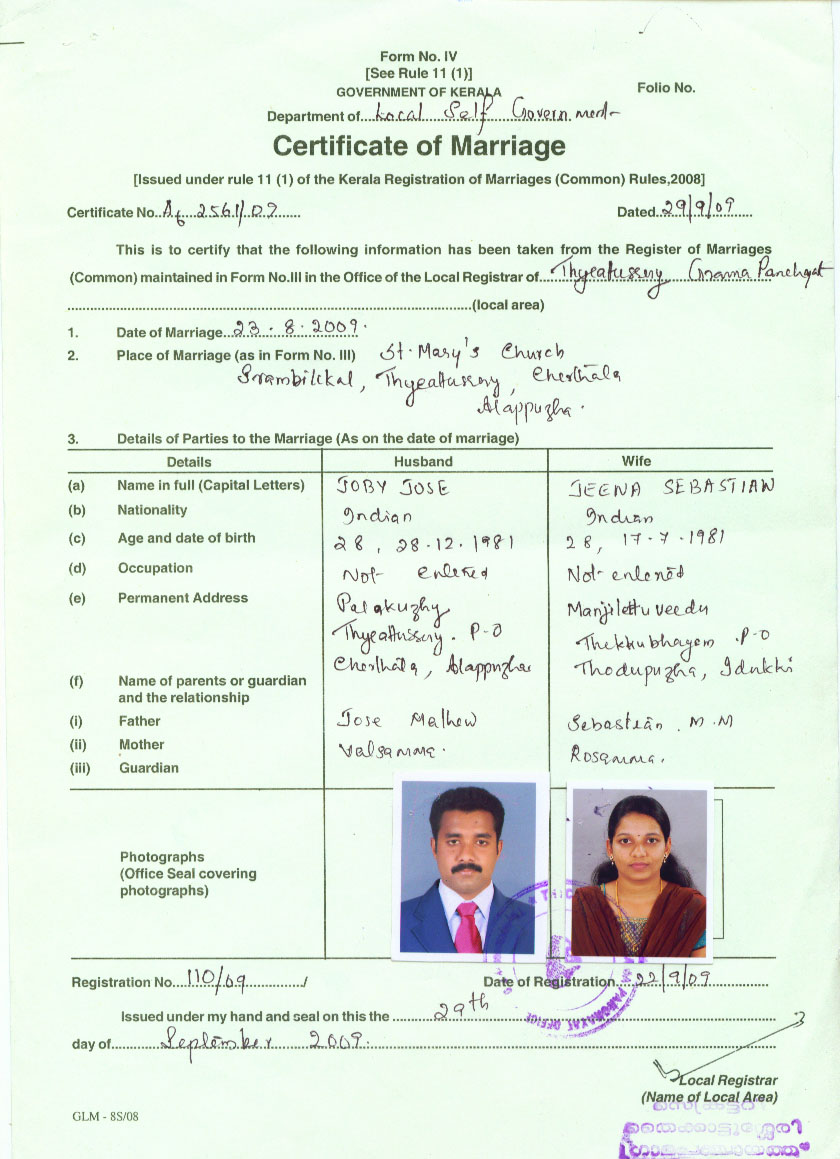 Form No. IV
[See Rule 11 (1)]
GOVERNMENT OF KERALA
Folio No.
Department of Local Self Government
Certificate of Marriage
[Issued under rule 11 (1) of the Kerala Registration of Marriages (Common) Rules,2008]
Certificate No. A6 2561/09 Dated 29/9/09
This is to certify that the following information has been taken from the Register of Marriages
(Common) maintained in Form No.III in the Office of the Local Registrar of Thycattussery Grama Panchayat
(local area)
1. Date of Marriage 23.8.2009.
2. Place of Marriage (as in Form No. III) St. Mary's Church
Thycattussery, Cherthala
Alappuzha.
3. Details of Parties to the Marriage (As on the date of marriage)
Details Husband Wife
(a) Name in full (Capital Letters) JOBY JOSE JEENA SEBASTIAN
(b) Nationality Indian Indian
(c) Age and date of birth 28, 28.12.1981 28, 17-7-1981
(d) Occupation Not entered Not entered
(e) Permanent Address Palakuzhy Manjilettu veedu
Thycattussery. P-O Thekkubhagom .P-O
Cherthala, Alappuzha Thodupuzha, Idukki
(f) Name of parents or guardian
and the relationship
(i) Father Jose Mathew Sebastian. M.M
(ii) Mother Valsamma. Rosamma.
(iii) Guardian
Photographs
(Office Seal covering
photographs)
Registration No. 110/09 / Date of Registration 22/9/09
Issued under my hand and seal on this the 29th
day of September 2009.
Local Registrar
(Name of Local Area)
GLM - 8S/08
സെക്രട്ടറി
തൈക്കാട്ടുശ്ശേരി
ഗ്രാമപഞ്ചായത്ത്